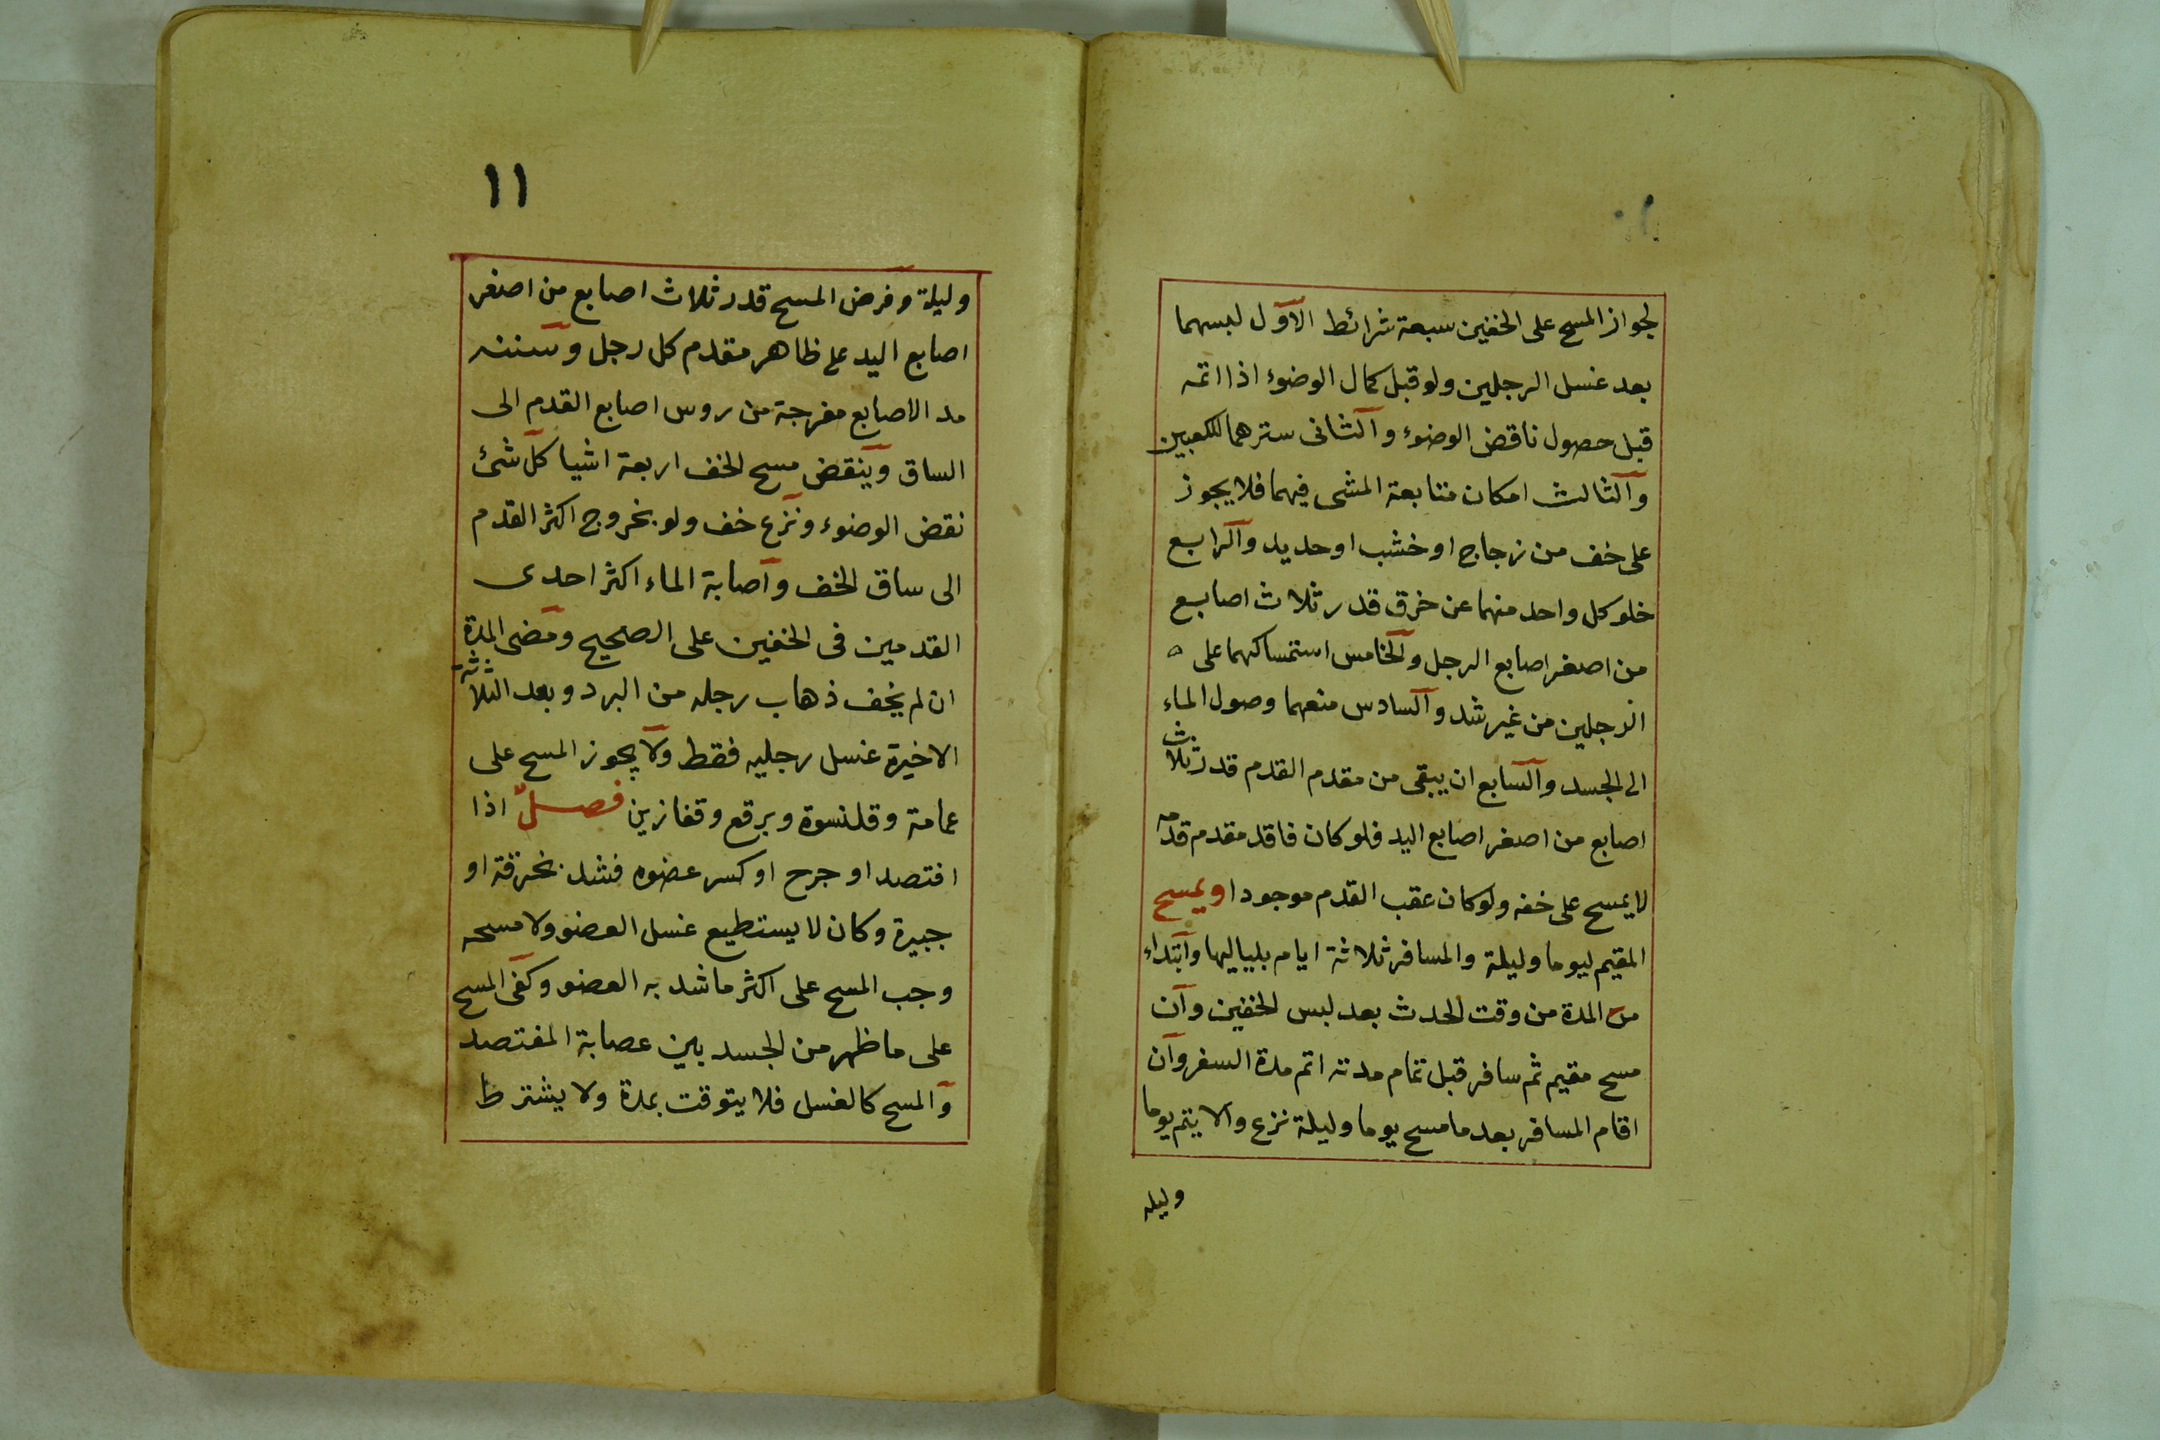 لجواز المسح على الخفين سبعة شرائط الاول لبسهما
بعد غسل الرجلين ولو قبل كمال الوضوء اذا اتمه
قبل حصول ناقض الوضوء والثانى سترهما للكعبين
والثالث امكان متابعة المشى فيهما فلا يجوز
على خف من زجاج او خشب او حديد والرابع
خلو كل واحد منهما عن خرق قدر ثلاث اصابع
من اصغر اصابع الرجل والخامس استمساكهما على
الرجلين من غير شد والسادس منعهما وصول الماء
الى الجسد والسابع ان يبقى من مقدم القدم قدر ثلاث
اصابع من اصغر اصابع اليد فلو كان فاقد مقدم قدمه
لا يمسح على خفه ولو كان عقب القدم موجودا ويمسح
المقيم ليوما وليلة والمسافر ثلاثة ايام بلياليها وابتداء
من المدة من وقت الحدث بعد لبس الخفين وان
مسح مقيم ثم سافر قبل تمام مدته اتم مدة السفر وان
اقام المسافر بعد ما مسح يوما وليلة نزع والا يتم يوما
وليله
١١
وليلة وفرض المسح قدر ثلاث اصابع من اصغر
اصابع اليد على ظاهر مقدم كل رجل وسننه
مد الاصابع مفرجة من روس اصابع القدم الى
الساق وينقض مسح الخف اربعة اشيا كل شئ
نقض الوضوء ونزع خف ولو بخروج اكثر القدم
الى ساق الخف واصابة الماء اكثر احدى
القدمين فى الخفين على الصحيح ومضى المدة
ان لم يخف ذهاب رجله من البرد وبعد الثلاثة
الاخيرة غسل رجليه فقط ولا يجوز المسح على
عمامة وقلنسوة وبرقع وقفازين فصل اذا
افتصد او جرح او كسر عضوه فشد بخرقة او
جبيرة وكان لا يستطيع غسل العضو ولا مسحه
وجب المسح على اكثر ما شد به العضو وكفى المسح
على ما ظهر من الجسد بين عصابة المفتصد
والمسح كالغسل فلا يتوقت بمدة ولا يشترط